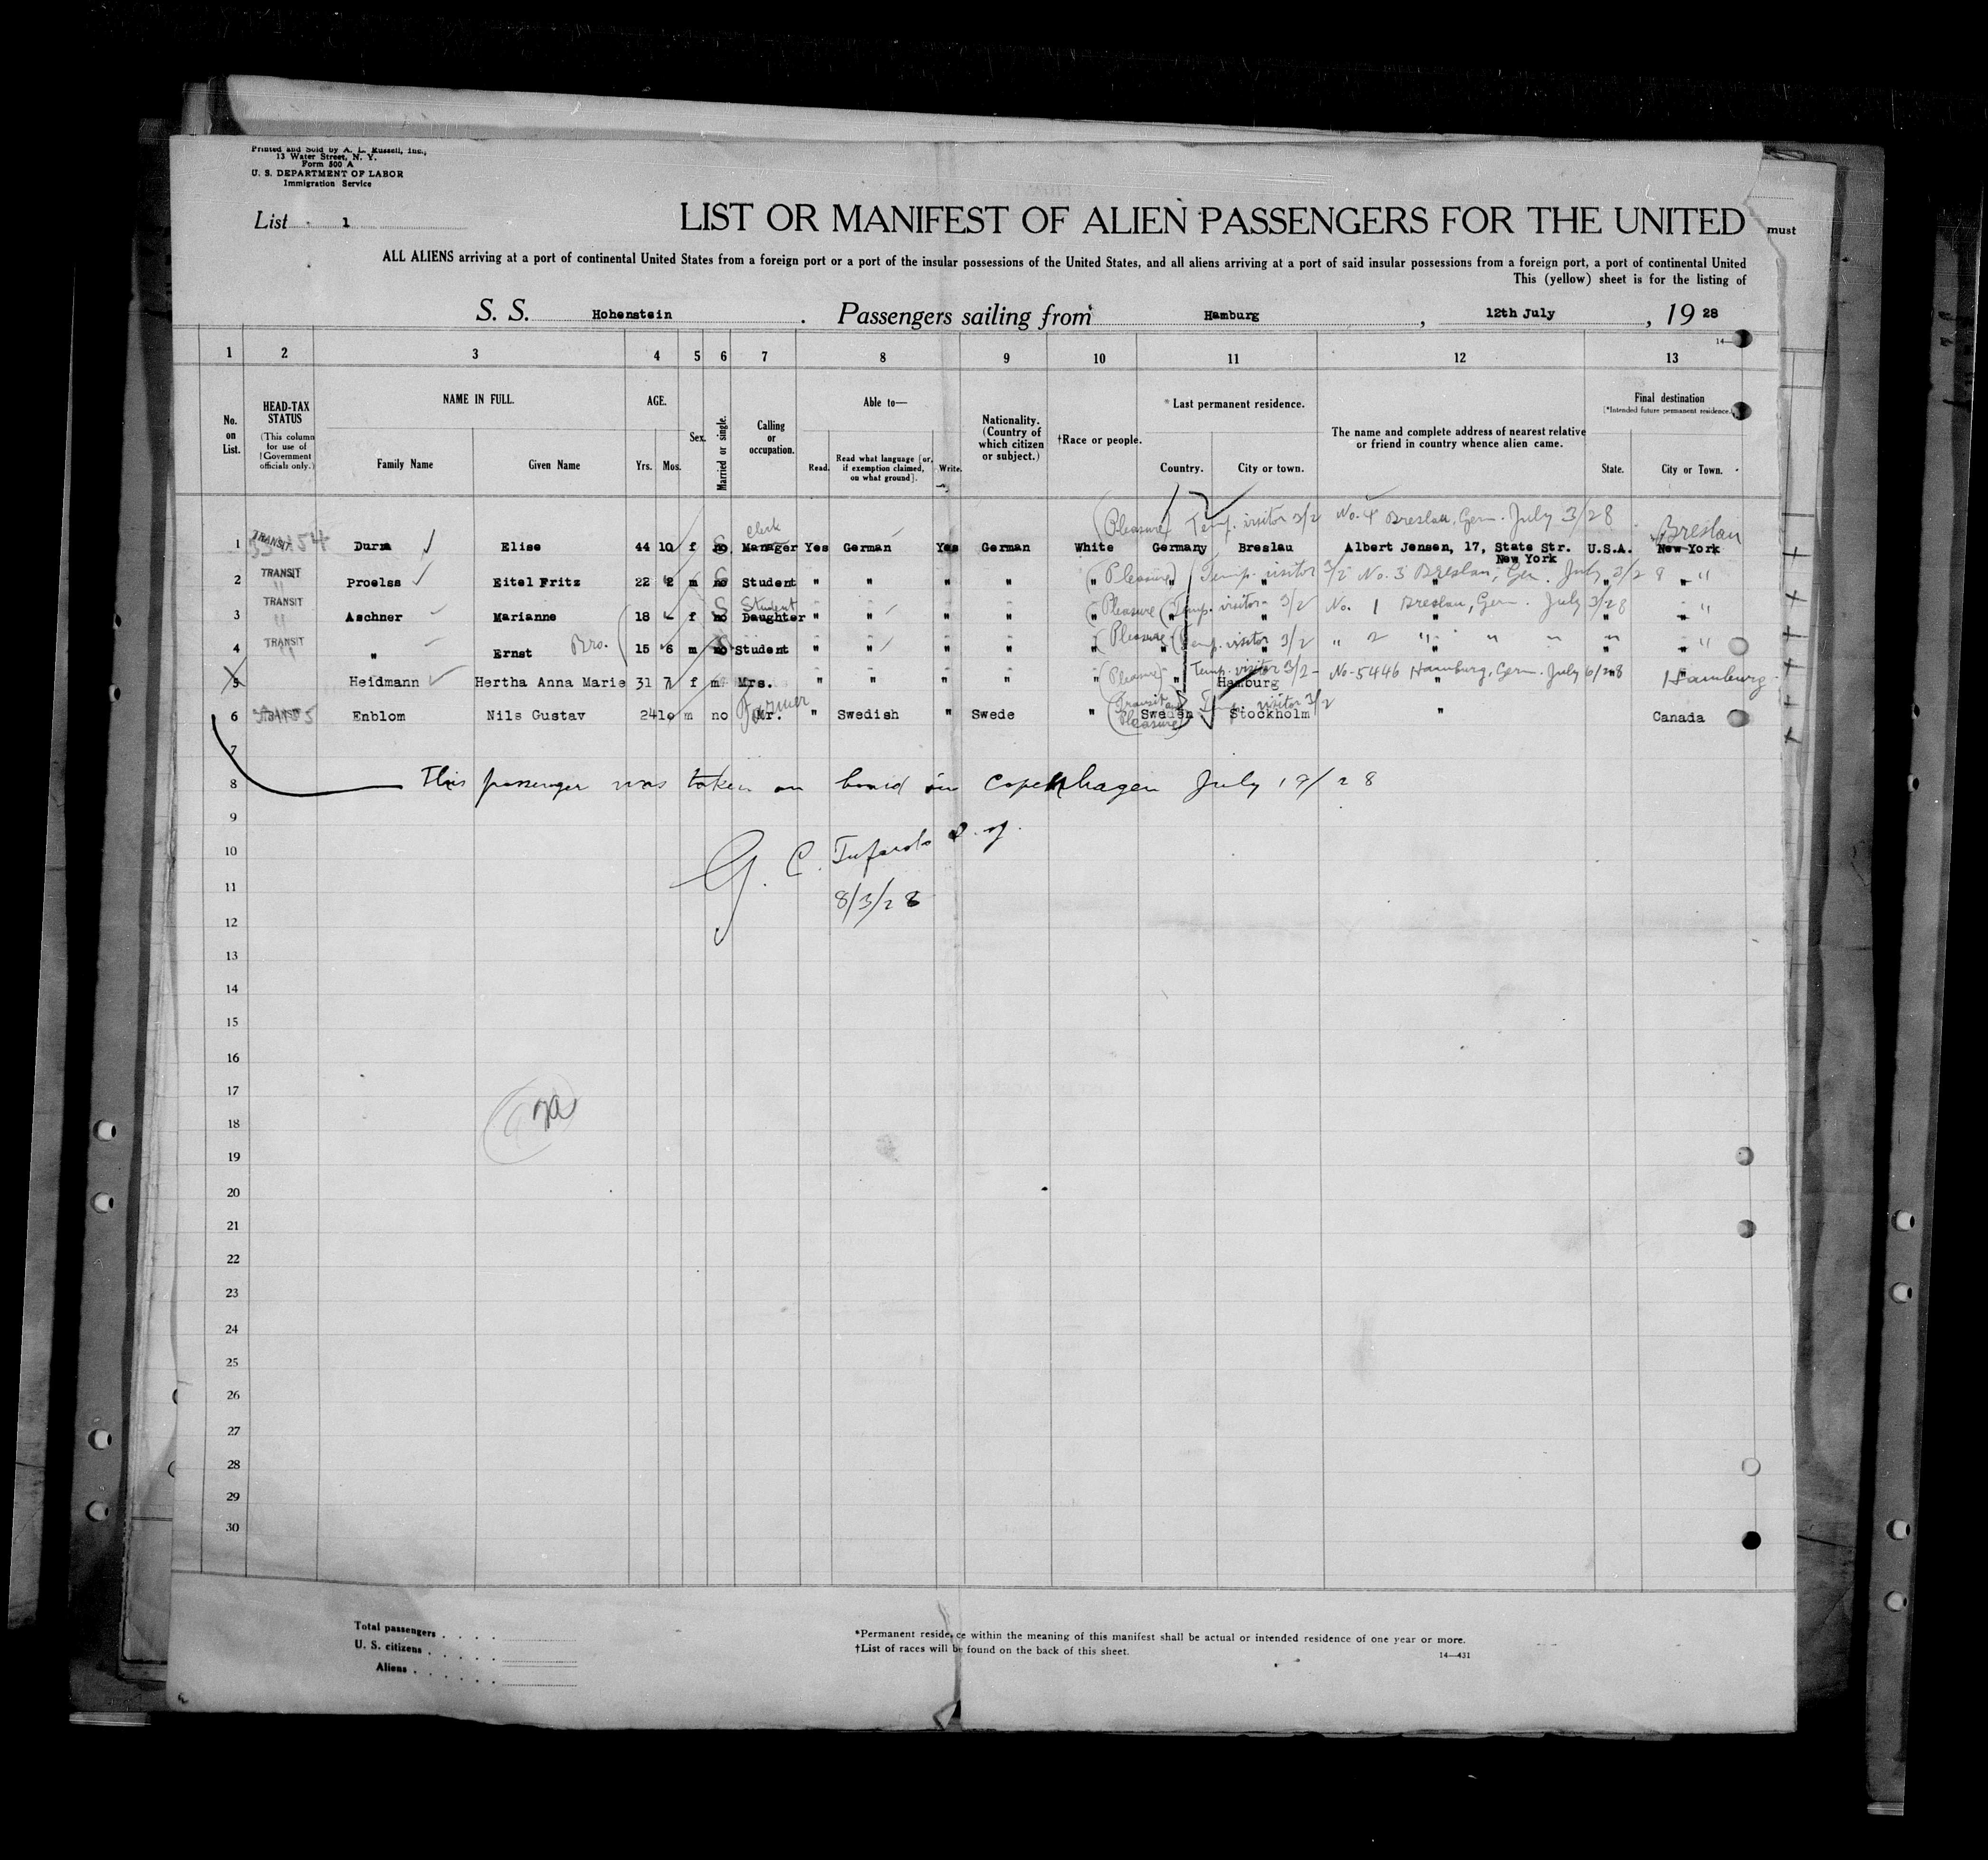 Printed and Sold by A. L. Russell, Inc.,
13 Water Street, N. Y.
Form 500 A
U. S. DEPARTMENT OF LABOR
Immigration Service
List 1
LIST OR MANIFEST OF ALIEN PASSENGERS FOR THE UNITED
must
ALL ALIENS arriving at a port of continental United States from a foreign port or a port of the insular possessions of the United States, and all aliens arriving at a port of said insular possessions from a foreign port, a port of continental United
This (yellow) sheet is for the listing of
S. S. Hohenstein. Passengers sailing from Hamburg, 12th July, 19 28
14—
1 2 3 4 5 6 7 8 9 10 11 12 13
No. on List.
HEAD-TAX STATUS (This column for use of Government officials only.)
NAME IN FULL.
Family Name
Given Name
AGE.
Yrs. Mos.
Sex.
Married or single.
Calling or occupation.
Able to—
Read.
Read what language [or, if exemption claimed, on what ground].
Write.
Nationality. (Country of which citizen or subject.)
†Race or people.
*Last permanent residence.
Country.
City or town.
The name and complete address of nearest relative or friend in country whence alien came.
Final destination
(*Intended future permanent residence.)
State.
City or Town.
Clerk (Pleasure) Temp. visitor 3/2 No. 4 Breslau, Ger. July 3/28 Breslau
1 TRANSIT Durm Elise 44 10 f no S Manager Yes German Yes German White Germany Breslau Albert Jensen, 17, State Str. New York U.S.A. New York
(Pleasure) Temp. visitor 3/2 No. 3 Breslau, Ger. July 3/28
2 TRANSIT Proelss Eitel Fritz 22 2 m no S Student " " " " " " " " " "
Student (Pleasure) Temp. visitor 3/2 No. 1 Breslau, Ger. July 3/28
3 TRANSIT Aschner Marianne 18 f no S Daughter " " " " " " " " " "
(Pleasure) Temp. visitor 3/2 " 2 " " " "
4 TRANSIT " Ernst Bro. 15 6 m no S Student " " " " " " " " " "
(Pleasure) Temp. visitor 3/2 - No. 5446 Hamburg, Ger. July 6/28 Hamburg
5 Heidmann Hertha Anna Marie 31 7 f m Mrs. " " " " " " Hamburg " "
Farmer (Transit and Pleasure) Temp. visitor 3/2
6 TRANSIT Enblom Nils Gustav 24 10 m no Mr. " Swedish " Swede " Sweden Stockholm " Canada
7
8 This passenger was taken on board in Copenhagen July 19/28
9
10 G. C.
11
8/3/28
12
13
14
15
16
17
18
19
20
21
22
23
24
25
26
27
28
29
30
Total passengers . . . .
U. S. citizens . . . . .
Aliens . . . . . .
*Permanent residence within the meaning of this manifest shall be actual or intended residence of one year or more.
†List of races will be found on the back of this sheet.
14—431